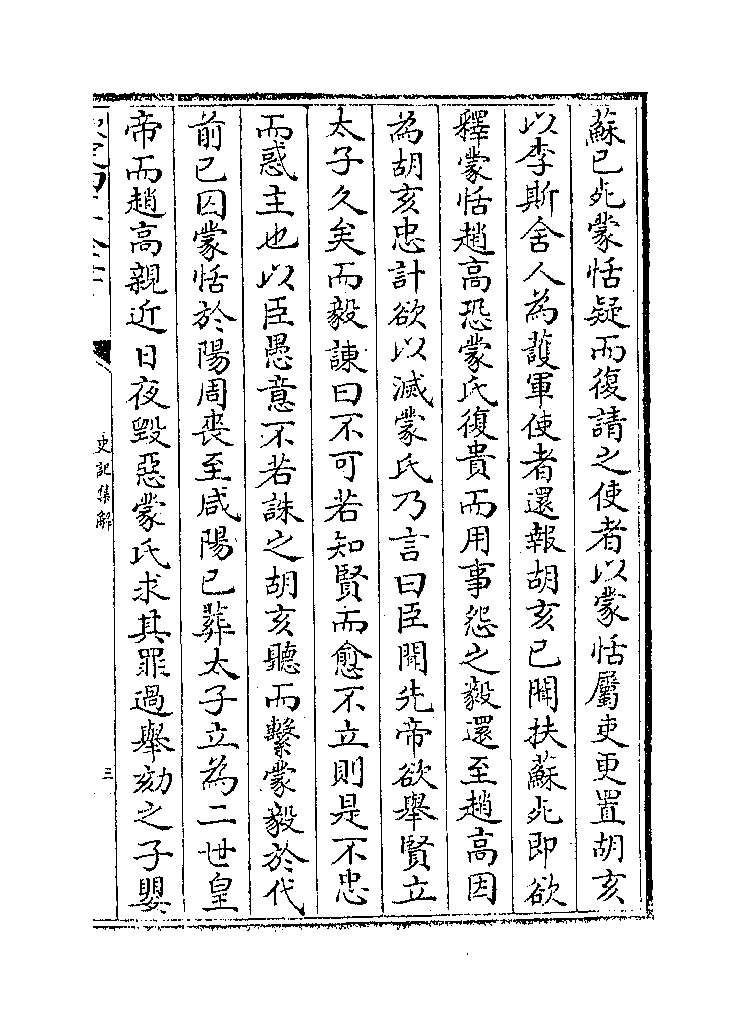 蘇已死蒙恬疑而復請之使者以蒙恬屬吏更置胡亥
以李斯舍人為護軍使者還報胡亥已聞扶蘇死即欲
釋蒙恬趙高恐蒙氏復貴而用事怨之毅還至趙高因
為胡亥忠計欲以滅蒙氏乃言曰臣聞先帝欲舉賢立
太子久矣而毅諫曰不可若知賢而愈不立則是不忠
而惑主也以臣愚意不若誅之胡亥聽而繫蒙毅於代
前已囚蒙恬於陽周喪至咸陽已葬太子立為二世皇
帝而趙高親近日夜毀惡蒙氏求其罪過舉劾之子嬰
史記集解
三